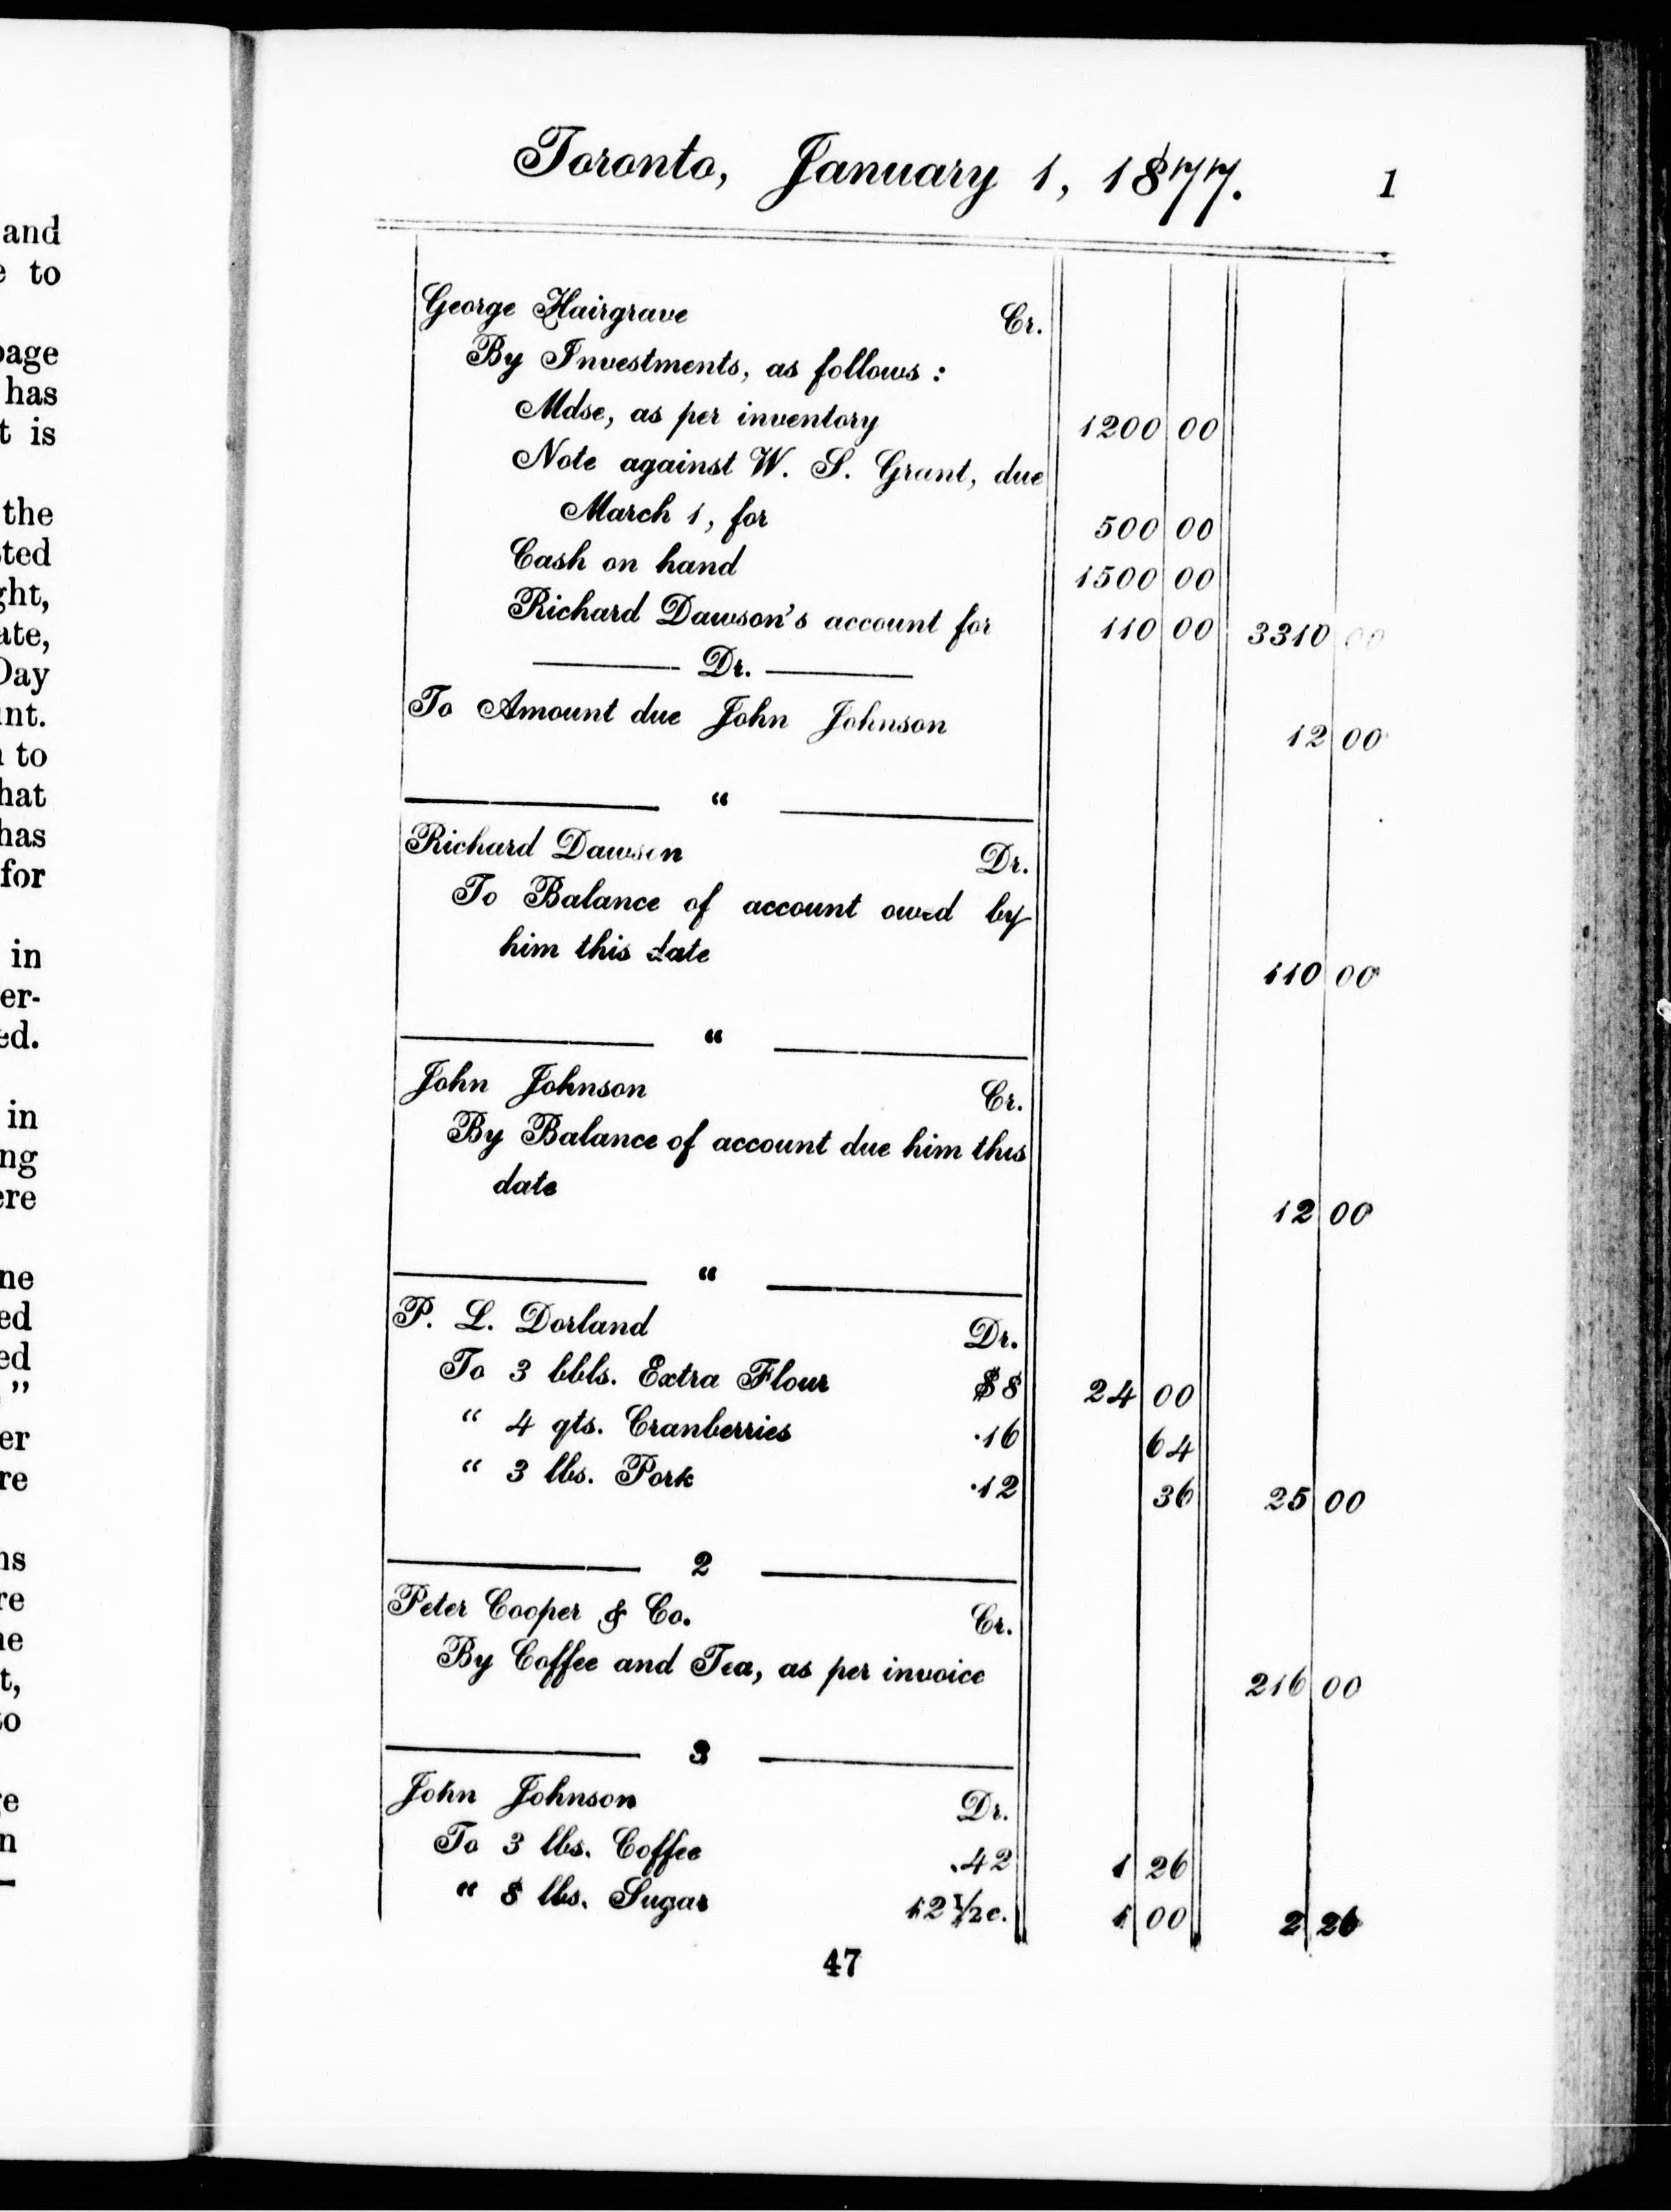 and
to
page
has
t is
the
sted
ght,
ate,
Day
nt.
to
hat
has
for
in
er-
ed.
in
ng
ere
ne
ed
ed
”
er
re
ns
re
ne
t,
to
e
n
Toronto, January 1, 1877. 1
George Hairgrave Cr.
By Investments, as follows :
Mdse, as per inventory 1200 00
Note against W. S. Grant, due
March 1, for 500 00
Cash on hand 1500 00
Richard Dawson's account for 110 00 3310 00
Dr.
To Amount due John Johnson 12 00
“
Richard Dawson Dr.
To Balance of account owed by
him this date 110 00
“
John Johnson Cr.
By Balance of account due him this
date 12 00
“
P. L. Dorland Dr.
To 3 bbls. Extra Flour $8 24 00
“ 4 qts. Cranberries .16 64
“ 3 lbs. Pork .12 36 25 00
2
Peter Cooper & Co. Cr.
By Coffee and Tea, as per invoice 216 00
3
John Johnson Dr.
To 3 lbs. Coffee .42 1 26
“ 8 lbs. Sugar 12½c. 1 00 2 26
47